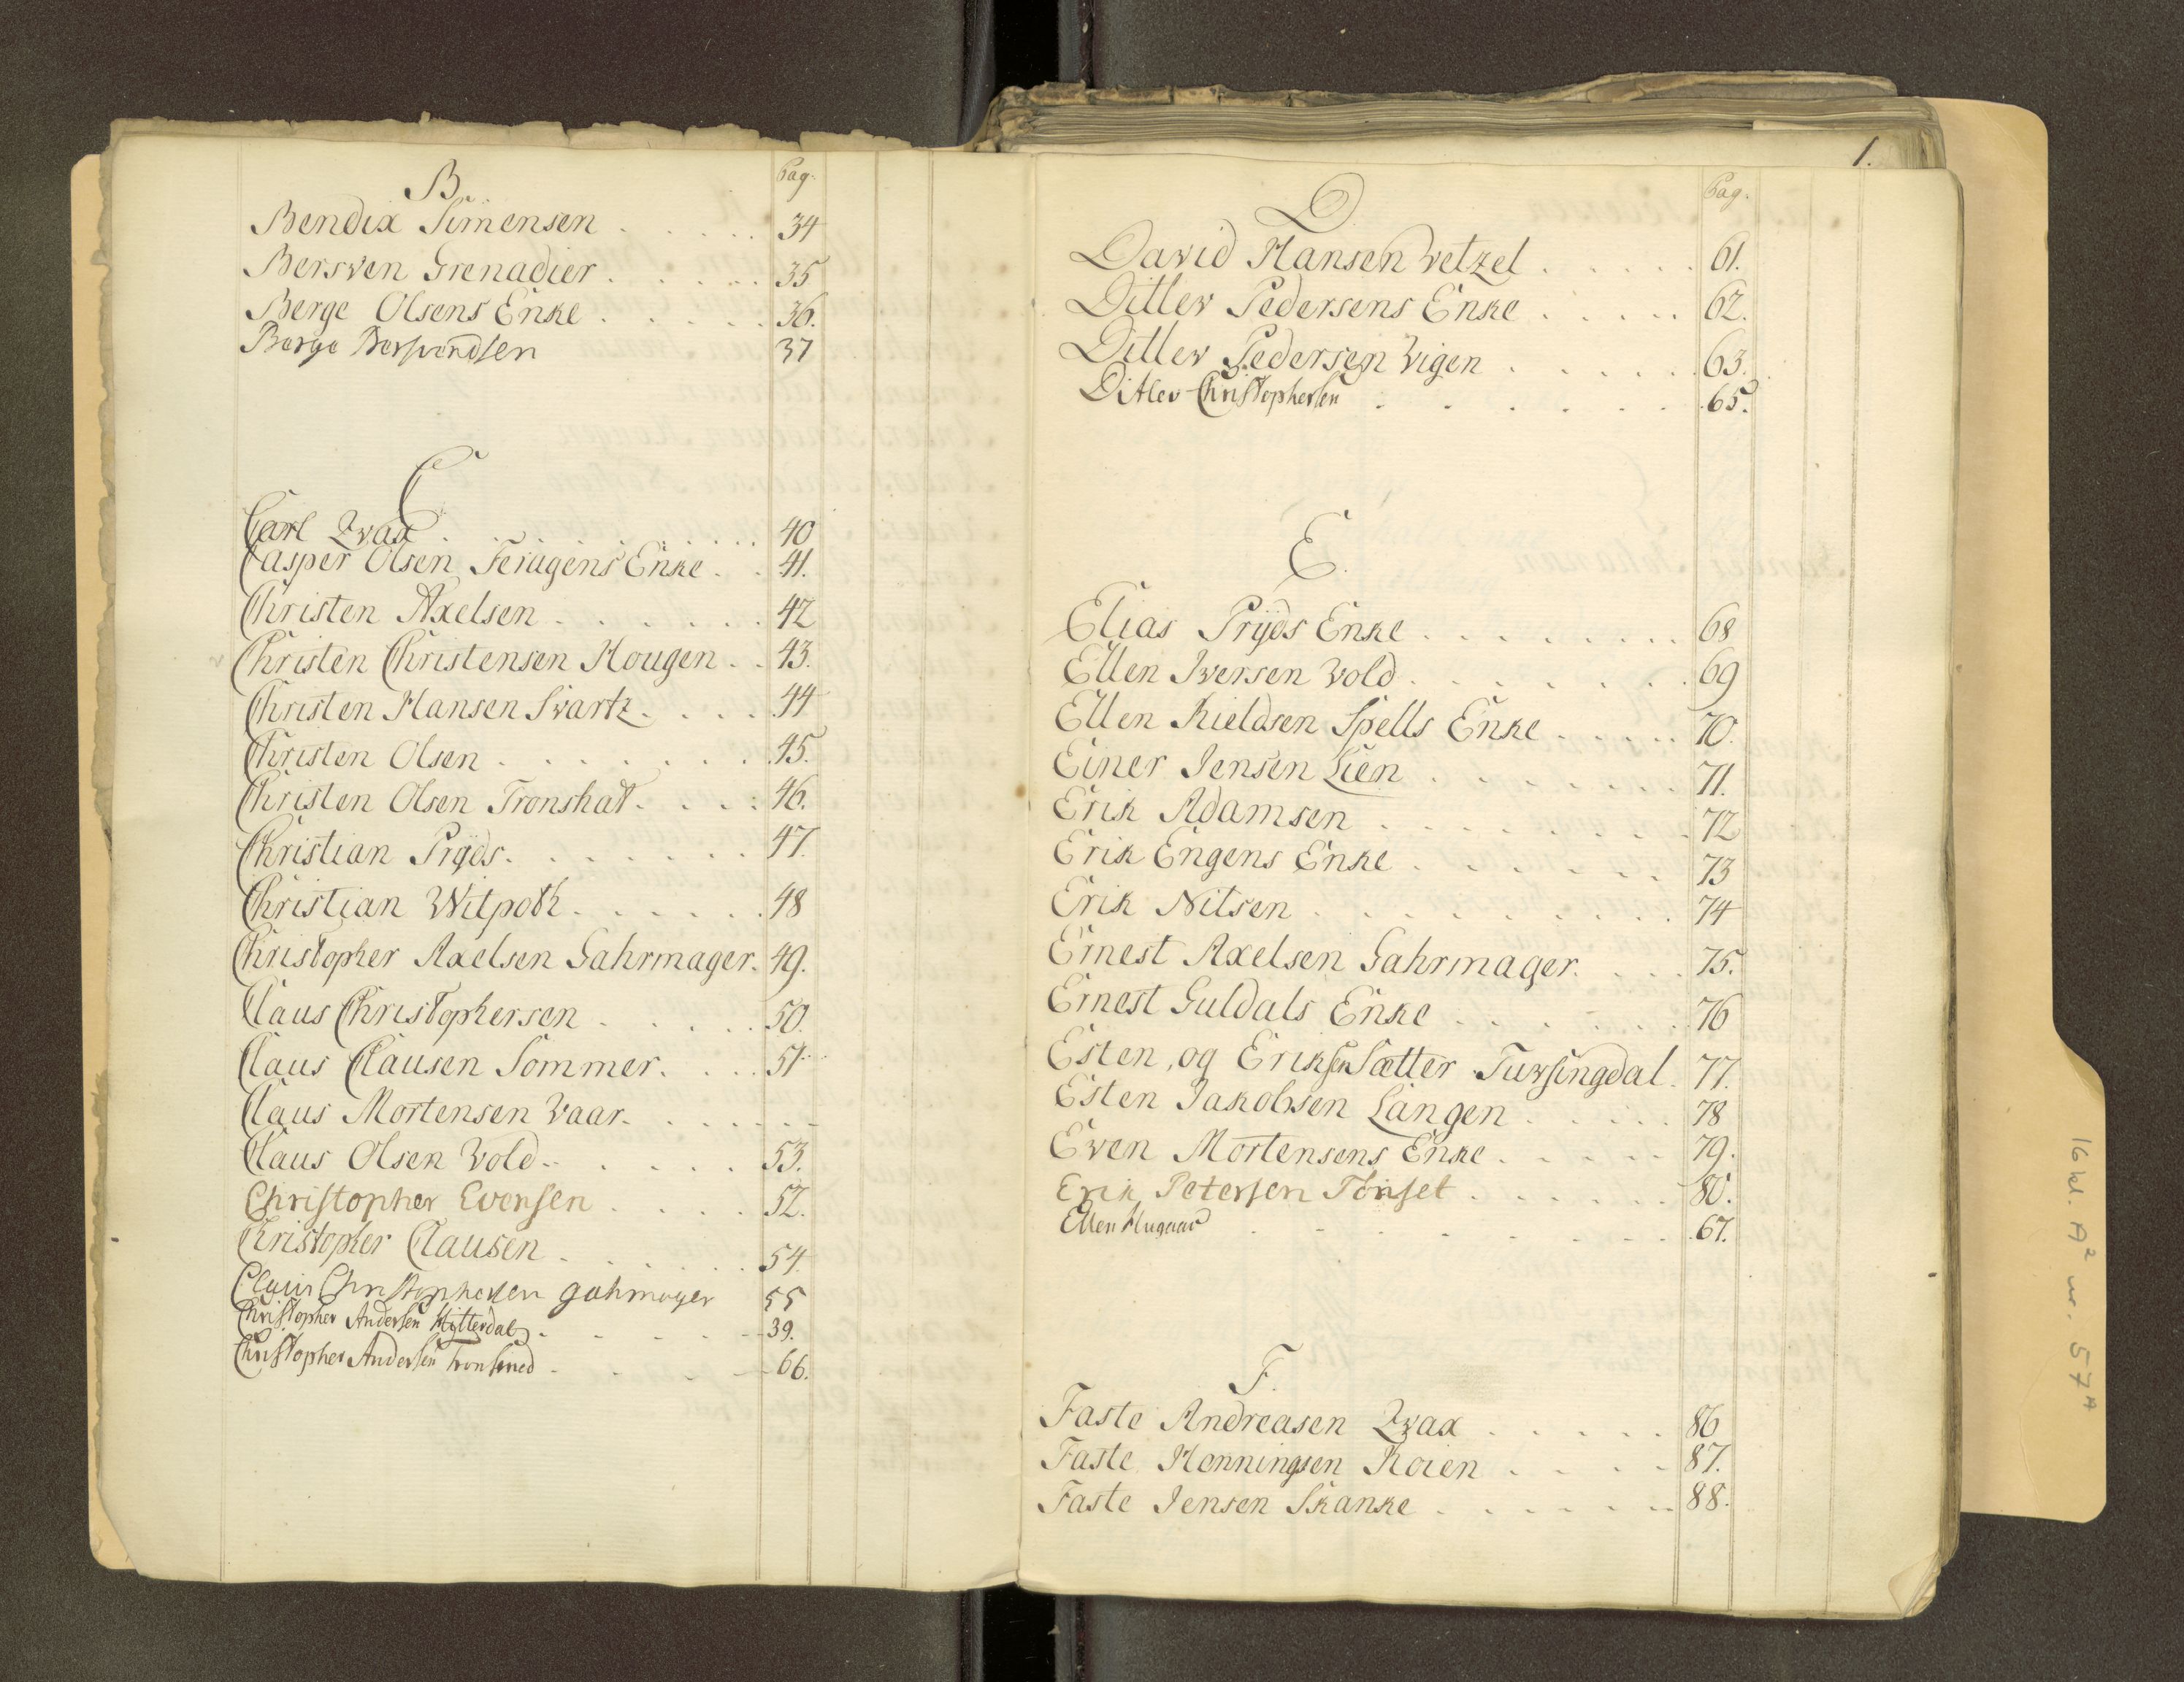 B.
Pag.
Bendix Simensen . . . . . 34
Bersven Grenadier . . . . . 35
Berge Olsens Enke . . . . . 36.
Berge Bersvendsen 37
C
Carl Qvax . . . . . . . . 40
Casper Olsen Feragens Enke . . 41.
Christen Axelsen . . . . . . 42
Christen Christensen Hougen . . 43.
Christen Hansen Svartz . . . . 44
Christen Olsen . . . . . . . 45.
Christen Olsen Tronshat . . . . 46.
Christian Prÿds . . . . . . . 47.
Christian Witpoth . . . . . . 48
Christopher Axelsen Gahrmager. 49.
Claus Christophersen . . . . . 50.
Claus Clausen Sommer . . . . 51
Claus Mortensen Vaar . . . . . .
Claus Olsen Vold . . . . . . 53.
Christopher Evensen . . . . 52.
Christopher Clausen . . . . . . 54.
Claus Christophersen gahrmager 55
Christopher Andersen Hitterdal . . . . . 39.
Christopher Andersen . . . . . 66.
1.
Pag.
D
David Hansen Vetzel . . . . . 61.
Ditlev Pedersens Enke . . . . . 62.
Ditlev Pedersen Vigen . . . . . . 63.
Ditlev Christophersen . . . . . . 65.
E.
Elias Prÿds Enke . . . . . . . . . 68
Ellen Iversen Vold . . . . . . . 69
Ellen Kieldsen Spells Enke . . . . . 70.
Einer Jensen Lien . . . . . . . 71.
Erik Adamsen . . . . . . . . . 72
Erik Engens Enke . . . . . . 73
Erik Nilsen . . . . . . . . . 74
Ernest Axelsen Gahrmager . . . . 75.
Ernest Guldals Enke . . . . . . 76
Esten, og Eriksen Sætter Tuvsingdal. 77.
Esten Jakobsen Langen . . . . . 78
Even Mortensens Enke . . . . . 79.
Erik Petersen Tönset . . . . . . 80.
Ellen Hugaas . . . . . . . . 67.
F.
Faste Andreasen Qvax . . . . . 86
Faste Henningsen Koien . . . . 87.
Faste Jensen Skanke . . . . . . 88.
16 kl. A² nr. 57ᴬ